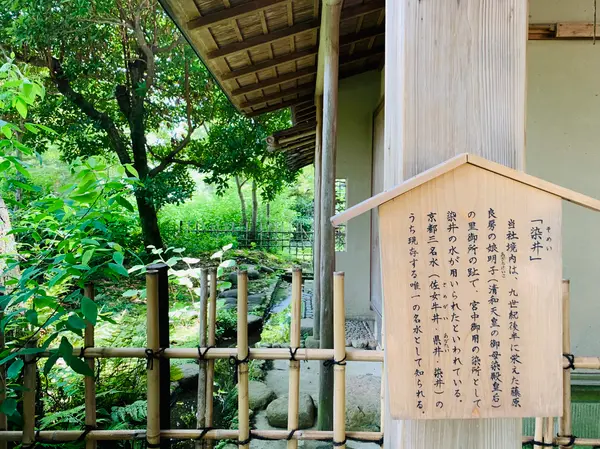 「染井」
そめい
当社境内は、九世紀後半に栄えた藤原
良房の娘明子（清和天皇の御母染殿皇后）
の里御所の趾で、宮中御用の染所として
染井の水が用いられたといわれている。
京都三名水（佐女牛井・県井・染井）の
うち現存する唯一の名水として知られる。